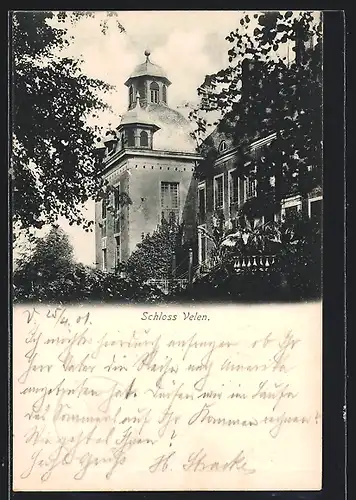 Schloss Velen.
V. 25/4. 01.
Ich möchte hierdurch anfragen ob Ihr
Herr Vater die Reise nach Amerika
angetreten hat. Dürfen wir im Laufe
des Sommers auf Ihr Kommen rechnen?
Wie gefällt Ihnen
H. Stracke